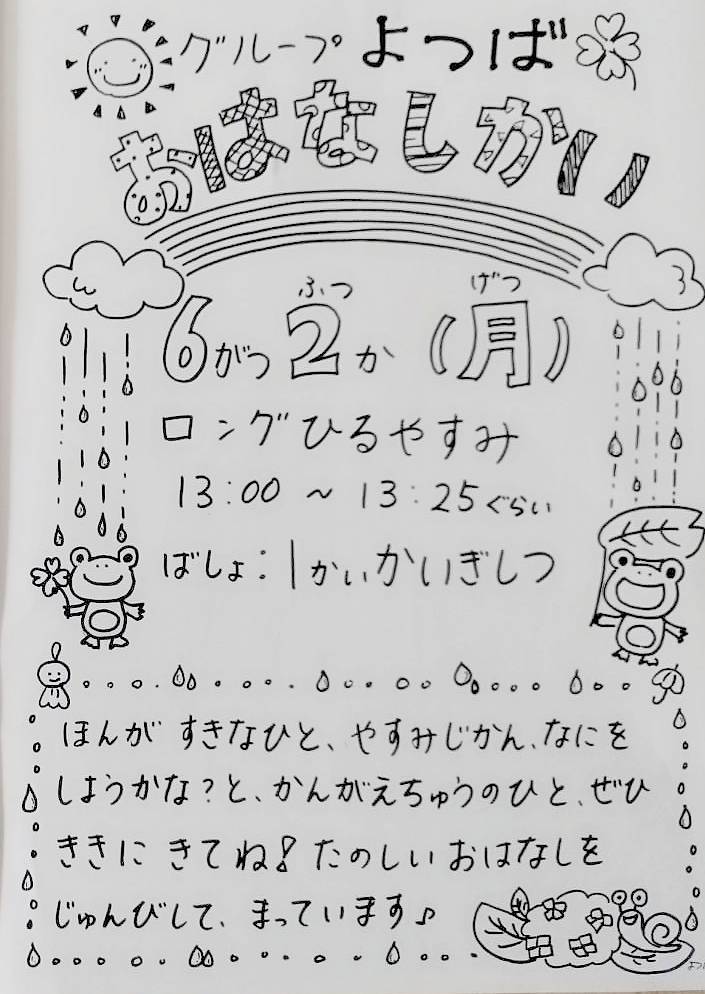 グループ よつば
おはなしかい
6がつ2か(月)
ふつ げつ
ロングひるやすみ
13:00 ~ 13:25ぐらい
ばしょ:1かいかいぎしつ
ほんが すきなひと、やすみじかん、なにを
しようかな?と、かんがえちゅうのひと、ぜひ
ききに きてね!たのしい おはなしを
じゅんびして、まっています♪